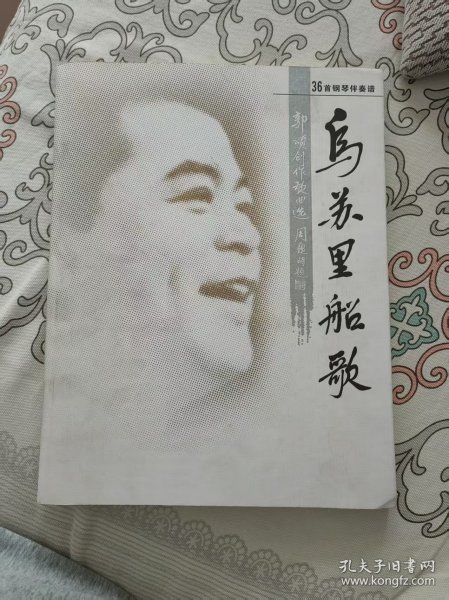 36首钢琴伴奏谱
乌苏里船歌
郭颂创作歌曲选
孔夫子旧书网
www.kongfz.com